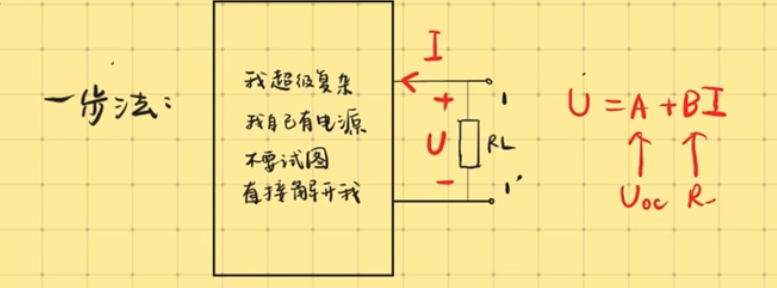 一步法:
我超级复杂
我自己有电源
不要试图
直接解开我
I
+
U
-
RL
1
1'
U = A + BI
Uoc R-